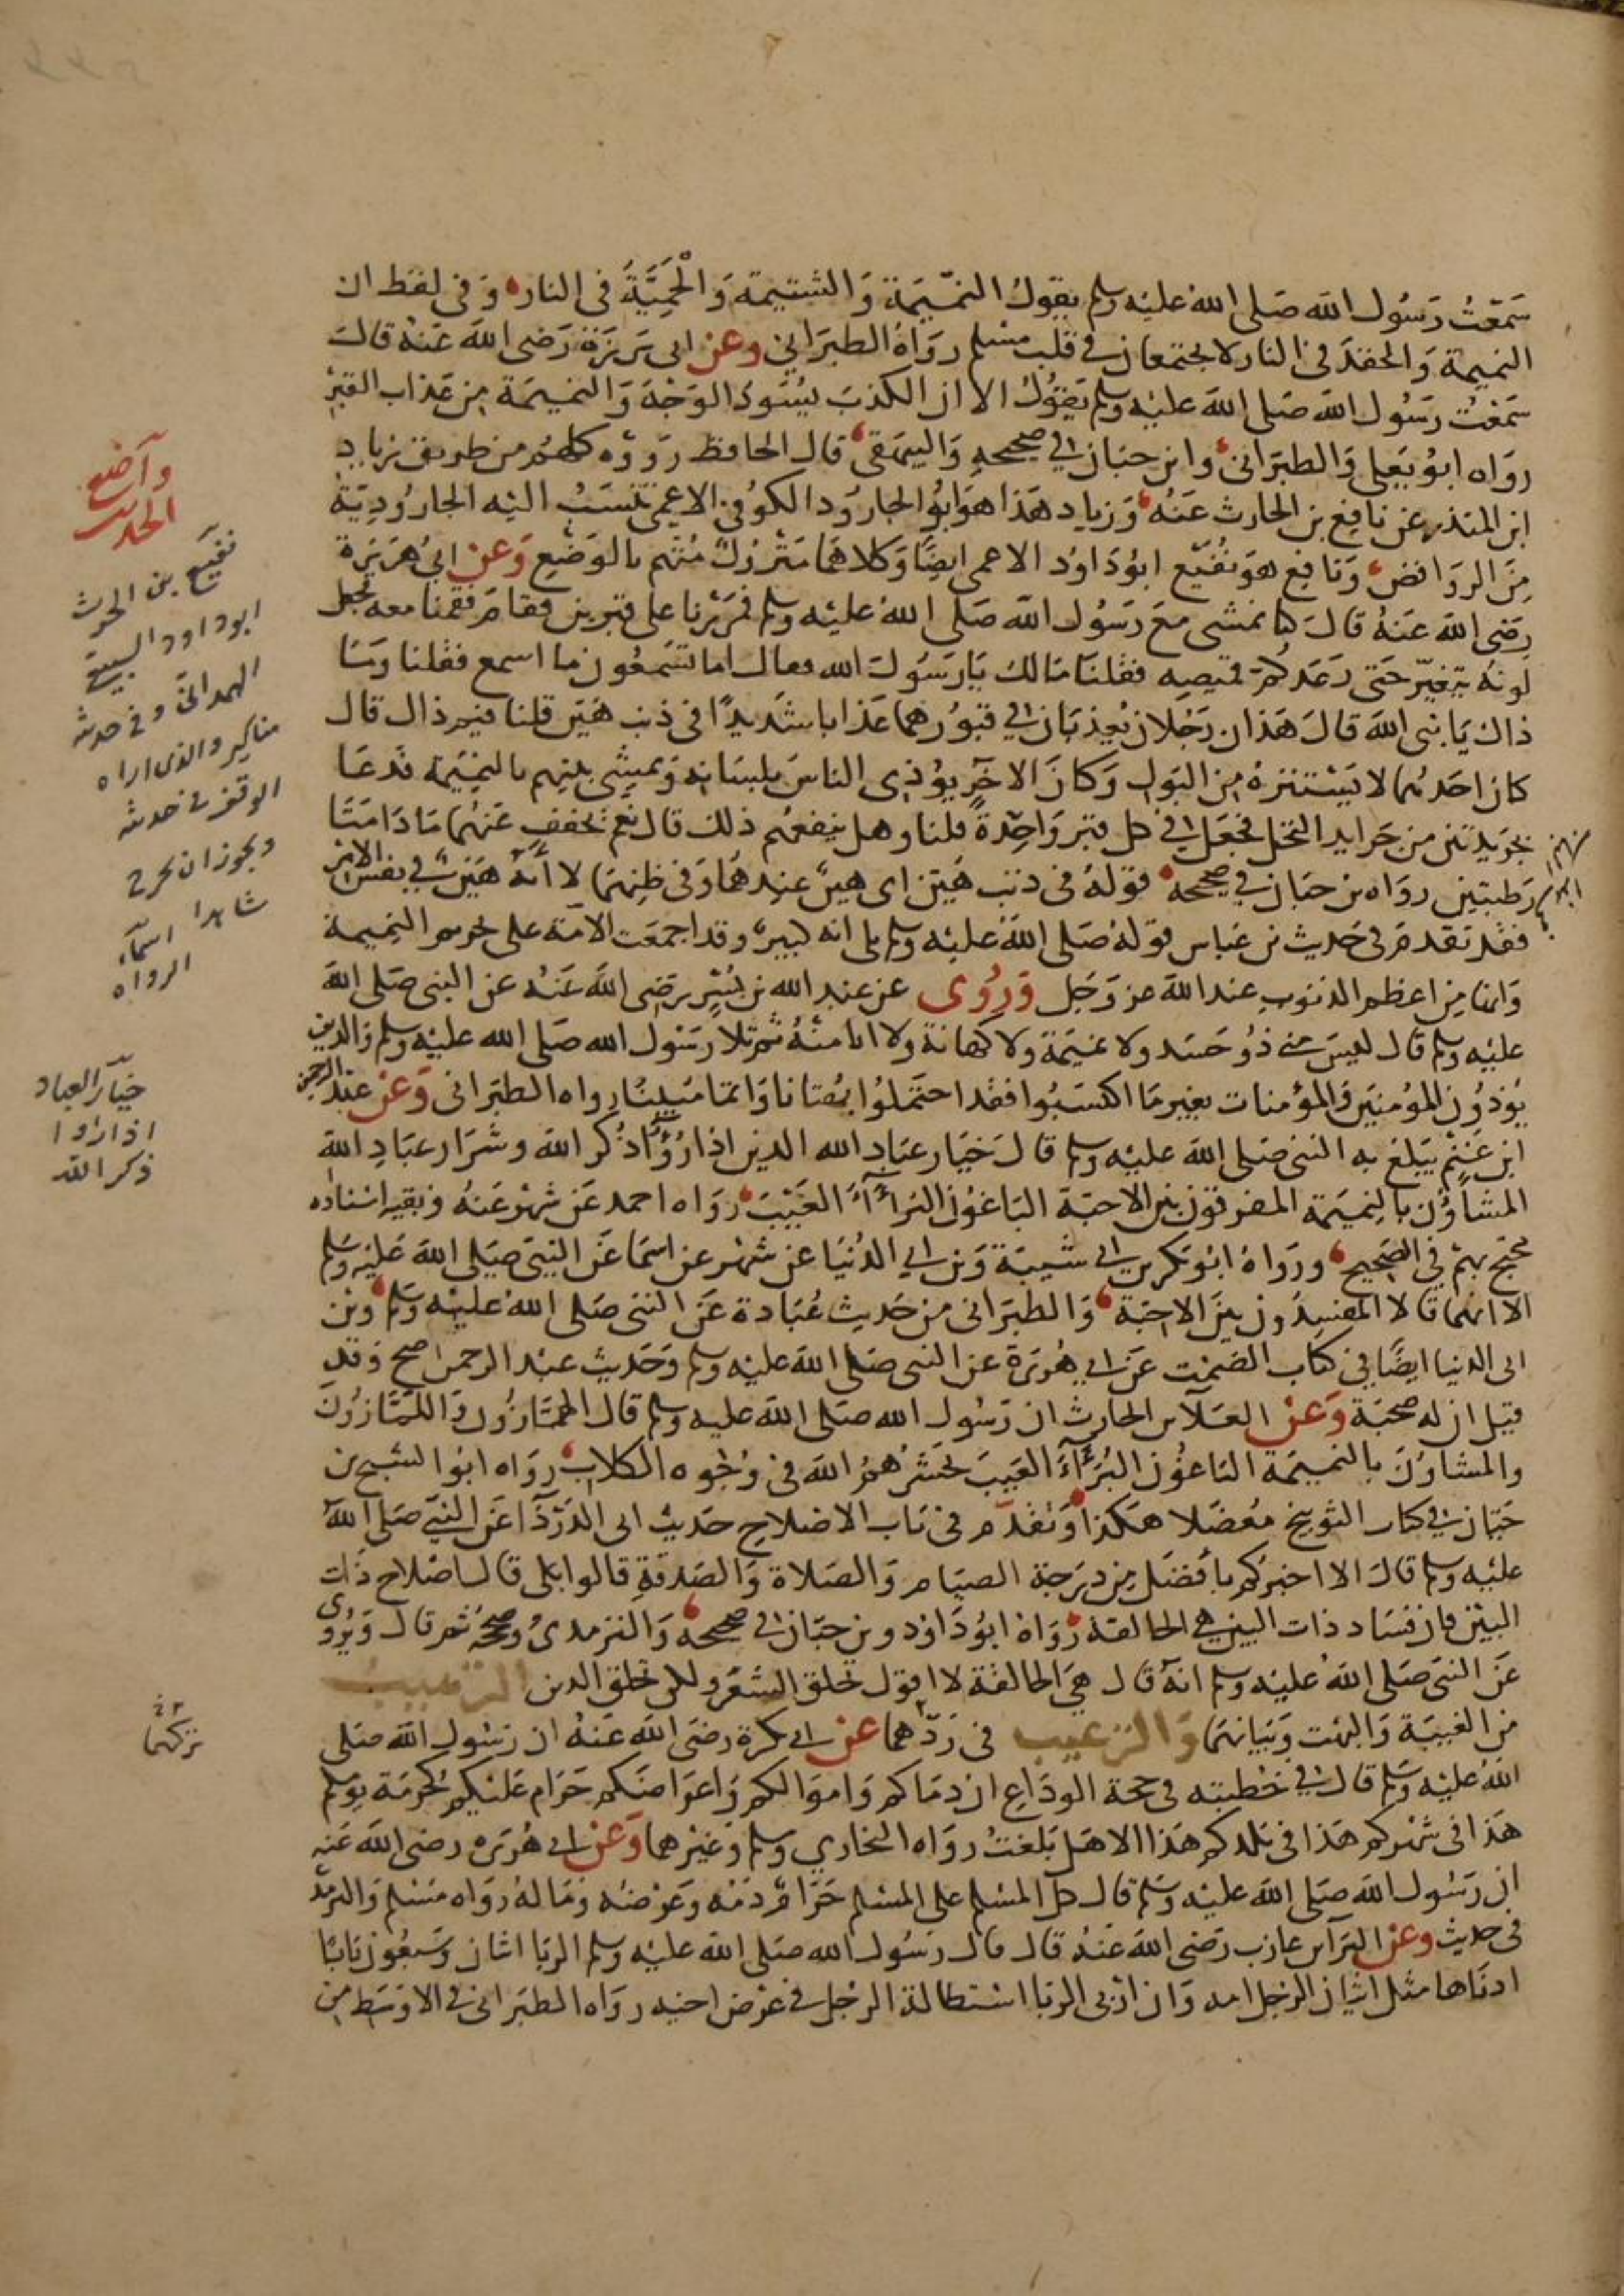 سمعت رسول الله صلى الله عليه وسلم يقول النميمة والشتيمة والحمية فى النار وفى لفظ ان
النميمة والحقد فى النار لا يجتمعان في قلب مسلم رواه الطبراني وعن ابى برزة رضى الله عنه قال
سمعت رسول الله صلى الله عليه وسلم يقول الا ان الكذب يسود الوجه والنميمة من عذاب القبر
رواه ابو يعلى والطبرانى وابن حبان في صحيحه والبيهقى قال الحافظ رووه كلهم من طريق زياد
ابن المنذر عن نافع بن الحارث عنه وزياد هذا هو ابو الجارود الكوفي الاعمى تنسب اليه الجارودية
من الروافض ونافع هو نفيع ابو داود الاعمى ايضا وكلاهما متروك متهم بالوضع وعن ابي هريرة
رضى الله عنه قال كنا نمشى مع رسول الله صلى الله عليه وسلم فمررنا على قبرين فقام فقمنا معه فجعل
لونه يتغير حتى رعد كم قميصه فقلنا مالك يا رسول الله فقال اما تسمعون ما اسمع فقلنا وما
ذاك يا نبى الله قال هذان رجلان يعذبان في قبورهما عذابا شديدا فى ذنب هين قلنا فيم ذاك قال
كان احدهما لا يستنزه من البول وكان الاخر يؤذى الناس بلسانه ويمشي بينهم بالنميمة فدعا
بجريدتين من جرايد النخل فجعل في كل قبر واحدة قلنا وهل ينفعهم ذلك قال نعم يخفف عنهما ما دامتا
رطبتين رواه بن حبان في صحيحه قوله فى ذنب هين اى هين عندهما وفى ظنهما لا انه هين في نفس الامر
فقد تقدم فى حديث بن عباس قوله صلى الله عليه وسلم بلى انه كبير وقد اجمعت الامة على تحريم النميمة
وانها من اعظم الذنوب عند الله عز وجل وروى عن عبد الله بن بسر رضى الله عنه عن النبى صلى الله
عليه وسلم قال ليس مني ذو حسد ولا نميمة ولا كهانة ولا انا منه ثم تلا رسول الله صلى الله عليه وسلم والذين
يؤذون المؤمنين والمؤمنات بغير ما اكتسبوا فقد احتملوا بهتانا واثما مبينا رواه الطبرانى وعن عبد الرحمن
ابن غنم يبلغ به النبى صلى الله عليه وسلم قال خيار عباد الله الذين اذا رؤوا ذكر الله وشرار عباد الله
المشاؤن بالنميمة المفرقون بين الاحبة الباغون البرآء العيب رواه احمد عن شهر عنه وبقية اسناده
محتج بهم في الصحيح ورواه ابو بكر بن ابي شيبة وبن ابي الدنيا عن شهر عن اسما عن النبى صلى الله عليه وسلم
الا انهما قالا المفسدون بين الاحبة والطبرانى من حديث عبادة عن النبى صلى الله عليه وسلم وبن
ابى الدنيا ايضا في كتاب الصمت عن ابي هريرة عن النبى صلى الله عليه وسلم وحديث عبد الرحمن اصح وقد
قيل ان له صحبة وعن العلآ بن الحارث ان رسول الله صلى الله عليه وسلم قال الهمازون واللمازون
والمشاؤن بالنميمة الباغون البرآء العيب يحشرهم الله فى وجوه الكلاب رواه ابو الشيخ بن
حبان في كتاب التوبيخ معضلا هكذا وتقدم فى باب الاصلاح حديث ابى الدردآ عن النبي صلى الله
عليه وسلم قال الا اخبركم بافضل من درجة الصيام والصلاة والصدقة قالوا بلى قال اصلاح ذات
البين فان فساد ذات البين هي الحالقة رواه ابو داود وبن حبان في صحيحه والترمذى وصححه ثم قال ويروى
عن النبى صلى الله عليه وسلم انه قال هي الحالقة لا اقول تحلق الشعر ولكن تحلق الدين الترهيب
من الغيبة والبهت وبيانهما والترغيب فى ردهما عن ابي بكرة رضى الله عنه ان رسول الله صلى
الله عليه وسلم قال في خطبته فى حجة الوداع ان دماكم واموالكم واعراضكم حرام عليكم كحرمة يومكم
هذا فى شهركم هذا فى بلدكم هذا الا هل بلغت رواه البخاري ومسلم وغيرهما وعن ابي هريرة رضى الله عنه
ان رسول الله صلى الله عليه وسلم قال كل المسلم على المسلم حرام دمه وعرضه وماله رواه مسلم والترمذ
فى حديث وعن البرآ بن عازب رضى الله عنه قال قال رسول الله صلى الله عليه وسلم الربا اثنان وسبعون بابا
ادناها مثل اتيان الرجل امه وان اربى الربا استطالة الرجل في عرض اخيه رواه الطبرانى في الاوسط من
وآضع
الحديث
نفيع بن الحرث
ابو داود السبيعي
الهمدانى وفى حديثه
مناكير والذى اراه
الوقف فى حديثه
ويجوز ان يخرج
شاهدا اسمآء
الرواه
خيآر العباد
اذا رؤا
ذكر الله
تزكهما